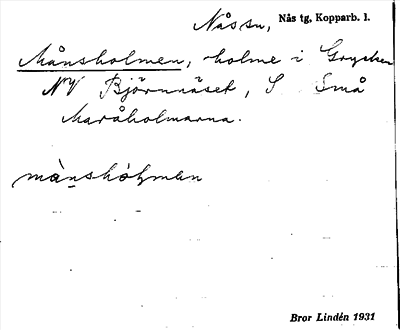 Nås sn, Nås tg, Kopparb. l.
Månsholmen, holme i Grycken
NV Björnnäset, S Små
Maråholmarna.
mànshòlman
Bror Lindén 1931